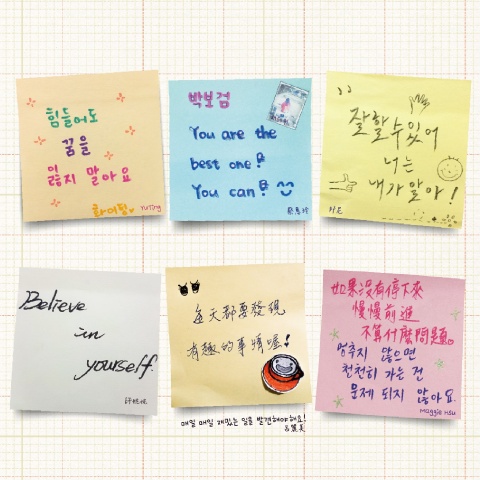 힘들어도
꿈을
잃지 말아요
화이팅♥
YuTing
박보검
You are the
best one!
You can!
잘할수있어
너는
내가 알아!
H.E
Believe
in
yourself.
每天都要發現
有趣的事情喔!
매일 매일 재밌는 일을 발견해야해요!
如果沒有停下來
慢慢前進
不算什麼問題。
멈추지 않으면
천천히 가는 건
문제 되지 않아요.
Maggie Hsu